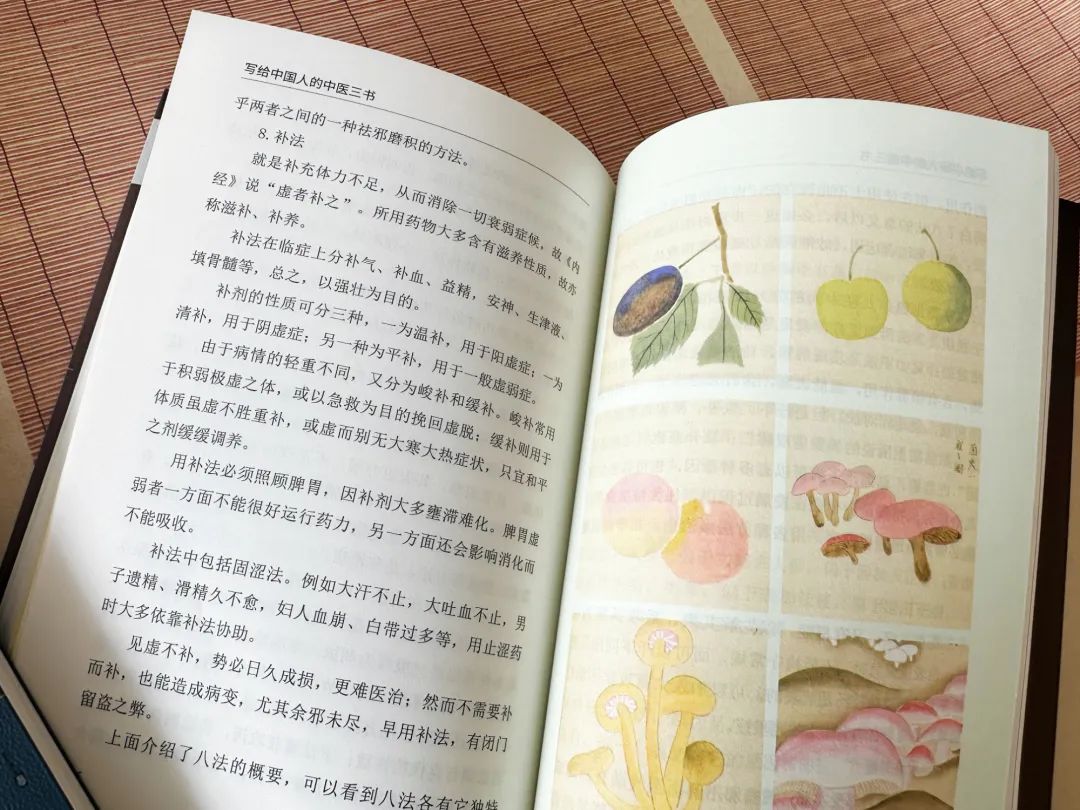 写给中国人的中医三书
乎两者之间的一种祛邪磨积的方法。
8. 补法
就是补充体力不足，从而消除一切衰弱症候，故《内
经》说“虚者补之”。所用药物大多含有滋养性质，故亦
称滋补、补养。
补法在临症上分补气、补血、益精，安神、生津液、
填骨髓等，总之，以强壮为目的。
补剂的性质可分三种，一为温补，用于阳虚症；一为
清补，用于阴虚症；另一种为平补，用于一般虚弱症。
由于病情的轻重不同，又分为峻补和缓补。峻补常用
于积弱极虚之体，或以急救为目的挽回虚脱；缓补则用于
体质虽虚不胜重补，或虚而别无大寒大热症状，只宜和平
之剂缓缓调养。
用补法必须照顾脾胃，因补剂大多壅滞难化。脾胃虚
弱者一方面不能很好运行药力，另一方面还会影响消化而
不能吸收。
补法中包括固涩法。例如大汗不止，大吐血不止，男
子遗精、滑精久不愈，妇人血崩、白带过多等，用止涩药
时大多依靠补法协助。
见虚不补，势必日久成损，更难医治；然而不需要补
而补，也能造成病变，尤其余邪未尽，早用补法，有闭门
留盗之弊。
上面介绍了八法的概要，可以看到八法各有它独特